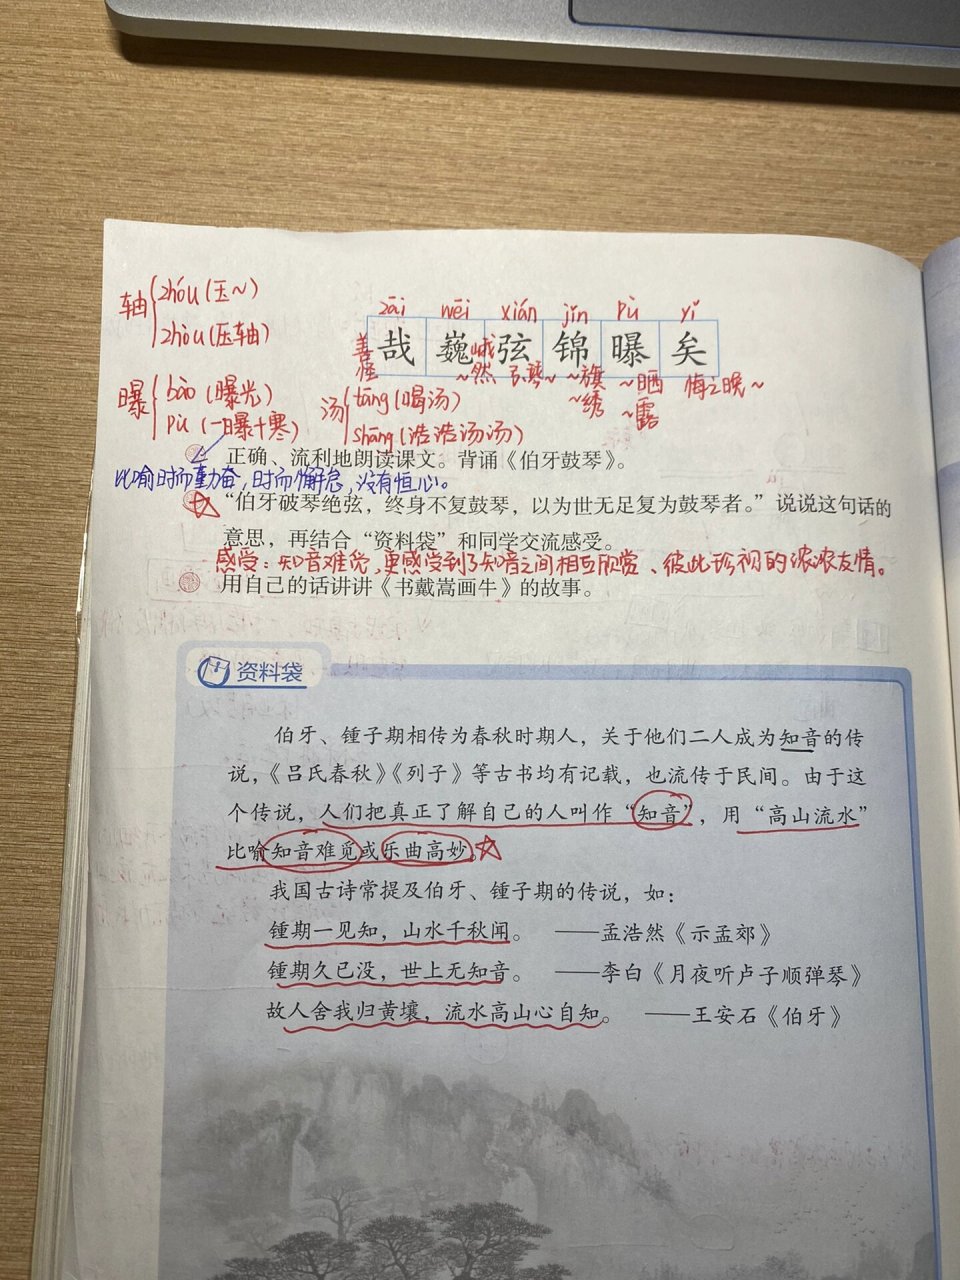 轴 zhóu(压~)
zhòu(压轴)
zāi wēi xián jǐn pù yǐ
哉 巍 弦 锦 曝 矣
善哉 巍峨 ~然 弓~ ~旗 ~晒 悔之晚~
~绣 ~露
曝 bào(曝光)
pù(一曝十寒)
汤 tāng(喝汤)
shāng(浩浩汤汤)
正确、流利地朗读课文。背诵《伯牙鼓琴》。
比喻时而勤奋,时而懈怠,没有恒心。
“伯牙破琴绝弦，终身不复鼓琴，以为世无足复为鼓琴者。”说说这句话的
意思，再结合“资料袋”和同学交流感受。
感受:知音难觅,更感受到了知音之间相互欣赏、彼此珍视的浓浓友情。
用自己的话讲讲《书戴嵩画牛》的故事。
资料袋
伯牙、锺子期相传为春秋时期人，关于他们二人成为知音的传
说，《吕氏春秋》《列子》等古书均有记载，也流传于民间。由于这
个传说，人们把真正了解自己的人叫作“知音”，用“高山流水”
比喻知音难觅或乐曲高妙。
我国古诗常提及伯牙、锺子期的传说，如：
锺期一见知，山水千秋闻。 ——孟浩然《示孟郊》
锺期久已没，世上无知音。 ——李白《月夜听卢子顺弹琴》
故人舍我归黄壤，流水高山心自知。 ——王安石《伯牙》